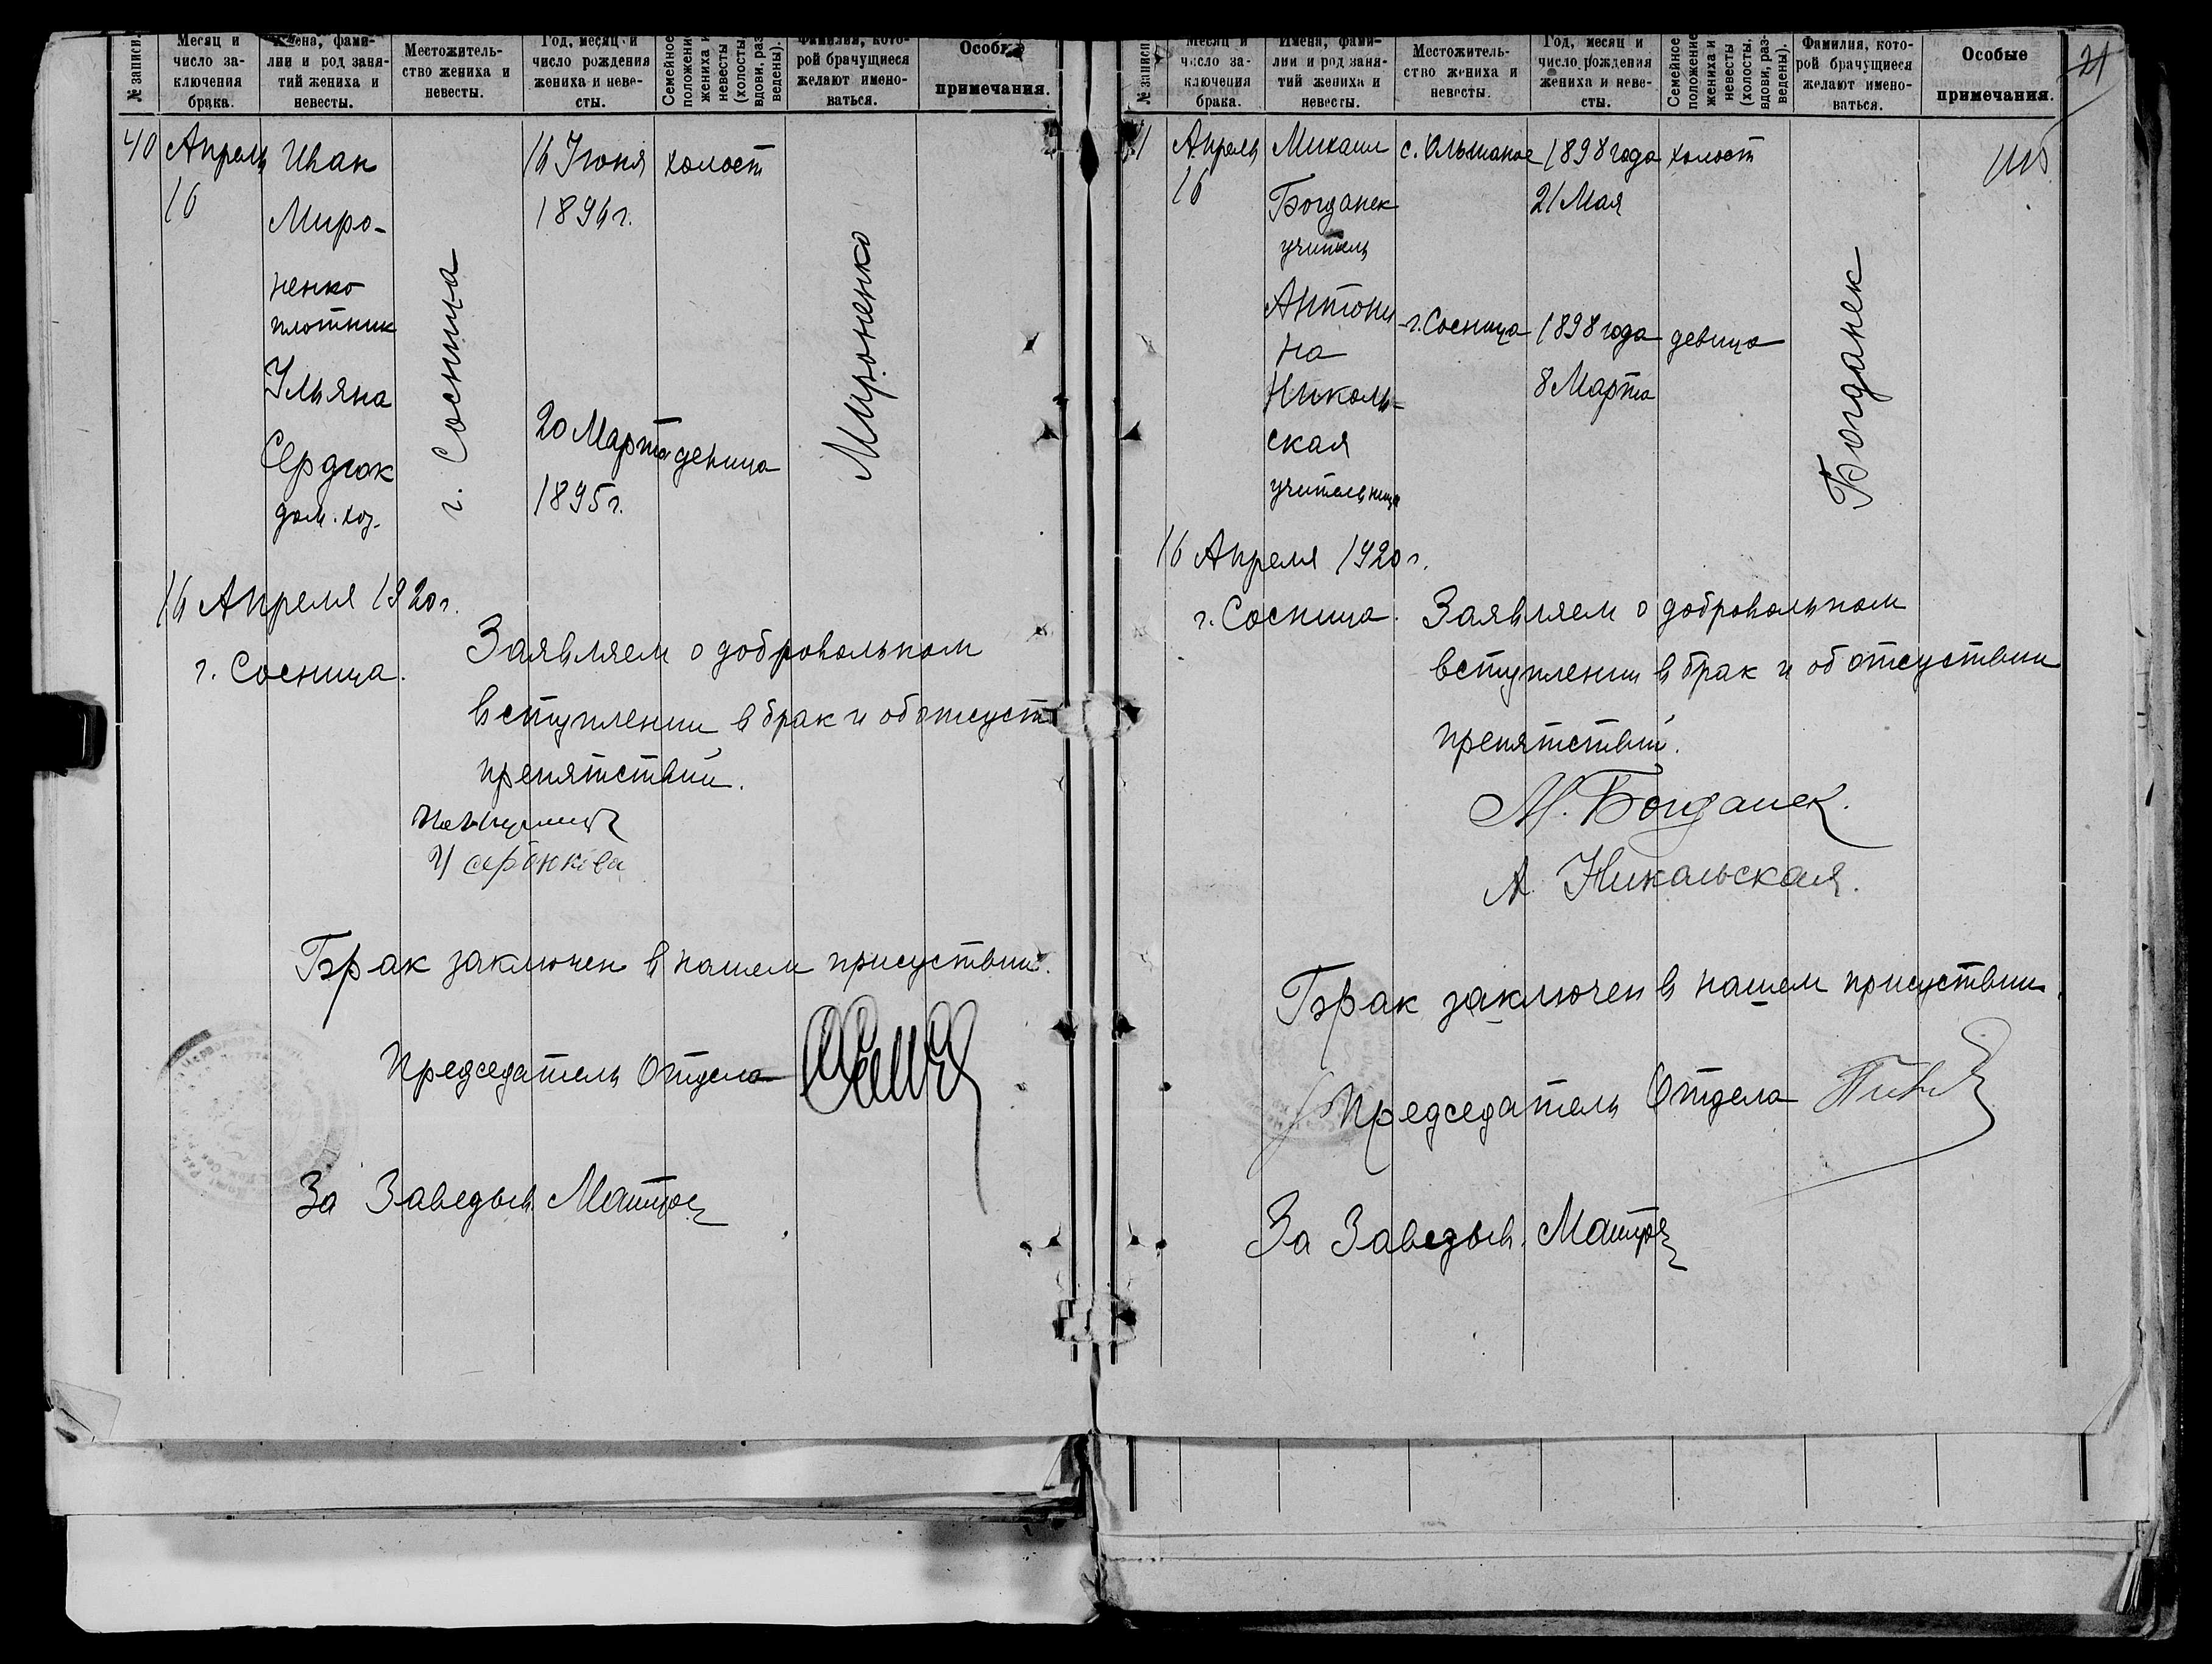 № записи.
Месяц и число заключения брака.
Имена, фамилии и род занятий жениха и невесты.
Местожительство жениха и невесты.
Год, месяц и число рождения жениха и невесты.
Семейное положение жениха и невесты (холосты, вдовы, разведены).
Фамилия, которой брачущиеся желают именоваться.
Особые примечания.
40
Апрель
16
Иван
Миро-
ненко
плотник
Ульяна
Сердюк
дом. хоз.
г. Сосница
16 Июня
1896 г.
20 Марта
1895 г.
холост
девица
Мироненко
16 Апреля 1920 г.
г. Сосница.
Заявляем о добровольном
вступлении в брак и об отсуст
препятствий.
Брак заключен в нашем присуствии.
Председатель Отдела
За Заведыв.
№ записи
Месяц и число заключения брака.
Имена, фамилии и род занятий жениха и невесты.
Местожительство жениха и невесты.
Год, месяц и число рождения жениха и невесты.
Семейное положение жениха и невесты (холосты, вдовы, разведены).
Фамилия, которой брачущиеся желают именоваться.
Особые примечания.
21
41
Апрель
16
Михаил
Богданек
учитель
Антони
на
Николь-
ская
учительница
с. Ольшаное
г. Сосница
1898 года
21 Мая
1898 года
8 Марта
холост
девица
Богданек
16 Апреля 1920 г.
г. Сосница.
Заявляем о добровольном
вступлении в брак и об отсуствии
препятствий.
М. Богданек.
А. Никольская.
Брак заключен в нашем присуствии.
Председатель Отдела
За Заведыв.